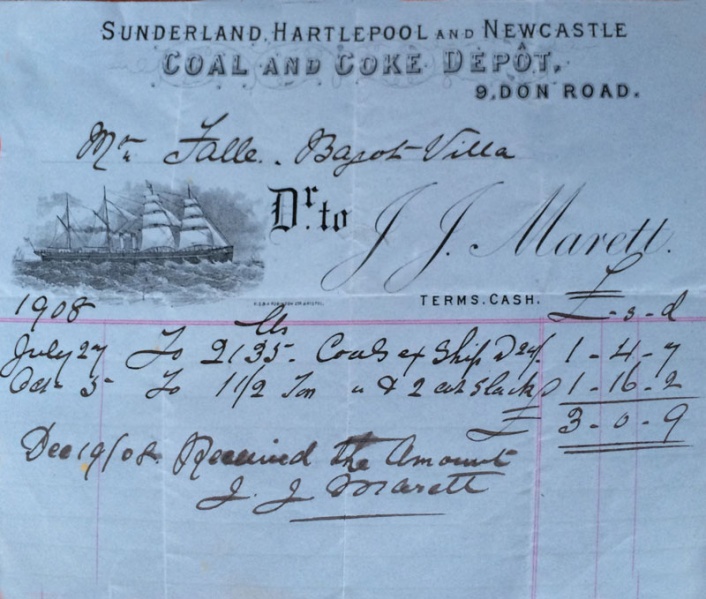 SUNDERLAND, HARTLEPOOL AND NEWCASTLE
COAL AND COKE DEPÔT,
9, DON ROAD.
Mr Falle. Bagot Villa
Dr. to J. J. Marett.
TERMS. CASH.
1908 £ - s - d
lbs
July 27 To 2135. Coals ex Ship @ 1 - 4 - 7
Oct 5 To 1 1/2 Ton " & 2 cwt Slack 1 - 16 - 2
£ 3 - 0 - 9
Dec 19/08. Received the Amount
J. J Marett